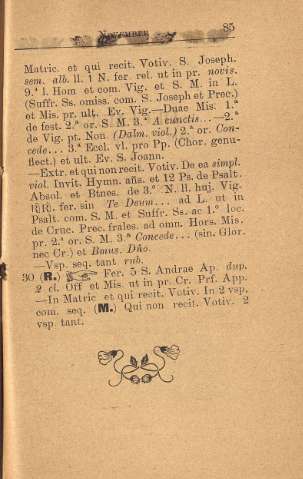 NOVEMBER 85
Matric. et qui recit. Votiv. S. Joseph.
sem. alb. ll. 1 N. fer. rel. ut in pr. novis.
9.ª l. Hom et com. Vig. et S. M. in L.
(Suffr. Ss. omiss. com. S. Joseph et Prec.)
et Mis. pr. ult. Ev. Vig.—Duae Mis. 1.ª
de fest. 2.ª or. S. M. 3.ª A cunctis...—2.ª
de Vig. pt. Non. (Dalm. viol.) 2.ª or. Con-
cede... 3.ª Eccl. vl. pro Pp. (Chor. genu-
flect.) et ult. Ev. S. Joann.
—Extr. et qui non recit. Votiv. De ea simpl.
viol. Invit. Hymn. añs. et 12 Ps. de Psalt.
Absol. et Btnes. de 3.º N. ll. huj. Vig.
RR). fer. sin Te Deum... ad L. ut in
Psalt. com. S. M. et Suffr. Ss. ac 1.º loc.
de Cruc. Prec. frales. ad omn. Hors. Mis.
pr. 2.ª or. S. M. 3.ª Concede... (sin. Glor.
nec Cr.) et Benus. Dño.
—Vsp. seq. tant rub.
30 (R.) Fer. 5 S. Andrae Ap. dup.
2 cl. Off et Mis. ut in pr. Cr. Prf. App.
—In Matric et qui recit. Votiv. In 2 vsp.
com. seq. (M.) Qui non recit. Votiv. 2
vsp. tant.